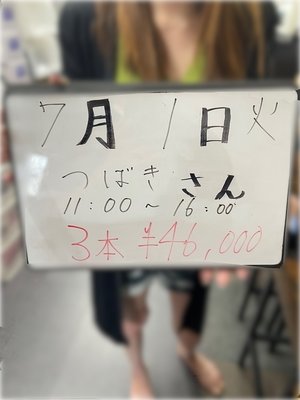 7月1日火
つばきさん
11:00～16:00
3本 ¥46,000